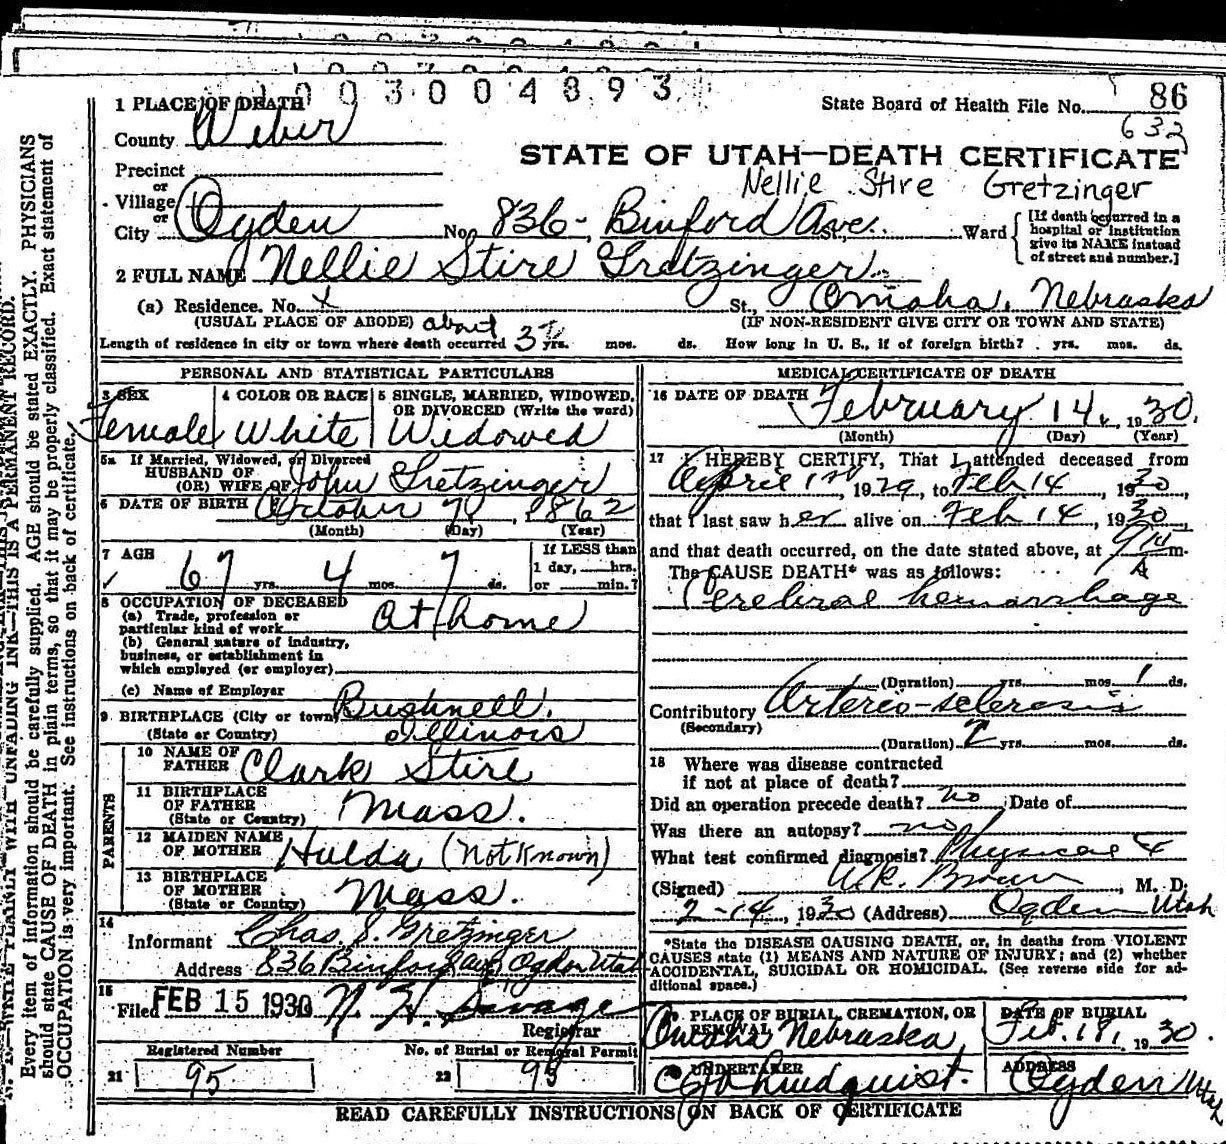 1003004893
1 PLACE OF DEATH
State Board of Health File No. 86
County Weber
632
STATE OF UTAH—DEATH CERTIFICATE
Precinct
or
Nellie Stire Gretzinger
Village
or
City Ogden No. 836 - Binford Ave. St., Ward
[If death occurred in a
hospital or institution
give its NAME instead
of street and number.]
2 FULL NAME Nellie Stire Gretzinger
(a) Residence. No. x St., Omaha, Nebraska
(USUAL PLACE OF ABODE) (IF NON-RESIDENT GIVE CITY OR TOWN AND STATE)
about
Length of residence in city or town where death occurred 3 yrs. mos. ds. How long in U. S., if of foreign birth? yrs. mos. ds.
PERSONAL AND STATISTICAL PARTICULARS
3 SEX 4 COLOR OR RACE 5 SINGLE, MARRIED, WIDOWED,
OR DIVORCED (Write the word)
Female White Widowed
5a If Married, Widowed, or Divorced
HUSBAND OF
(OR) WIFE OF John Gretzinger
6 DATE OF BIRTH October 7 1862
(Month) (Day) (Year)
7 AGE If LESS than
1 day, hrs.
67 yrs. 4 mos. 7 ds. or min.?
8 OCCUPATION OF DECEASED
(a) Trade, profession or
particular kind of work At home
(b) General nature of industry,
business, or establishment in
which employed (or employer)
(c) Name of Employer
9 BIRTHPLACE (City or town) Bushnell.
(State or Country) Illinois
PARENTS
10 NAME OF
FATHER Clark Stire
11 BIRTHPLACE
OF FATHER
(State or Country) Mass.
12 MAIDEN NAME
OF MOTHER Hulda (Not Known)
13 BIRTHPLACE
OF MOTHER
(State or Country) Mass.
14
Informant Chas. S. Gretzinger
Address 836 Binford ave Ogden Utah
15
Filed FEB 15 1930 N. H. Savage
Registrar
Registered Number No. of Burial or Removal Permit
21 95 22 95
MEDICAL CERTIFICATE OF DEATH
16 DATE OF DEATH February 14, 1930.
(Month) (Day) (Year)
17 I HEREBY CERTIFY, That I attended deceased from
April 1st, 1929, to Feb 14, 1930,
that I last saw her alive on Feb 14, 1930,
and that death occurred, on the date stated above, at 9 A m.
The CAUSE DEATH* was as follows:
Cerebral hemorrhage
(Duration) yrs. mos. 1 ds.
Contributory Arterio-sclerosis
(Secondary)
(Duration) 2 yrs. mos. ds.
18 Where was disease contracted
if not at place of death?
Did an operation precede death? no Date of
Was there an autopsy? no
What test confirmed diagnosis? Physical
(Signed) Brown, M. D.
2-14, 1930 (Address) Ogden Utah
*State the DISEASE CAUSING DEATH, or, in deaths from VIOLENT
CAUSES state (1) MEANS AND NATURE OF INJURY; and (2) whether
ACCIDENTAL, SUICIDAL OR HOMICIDAL. (See reverse side for ad-
ditional space.)
PLACE OF BURIAL, CREMATION, OR
REMOVAL
DATE OF BURIAL
Omaha Nebraska, Feb. 18, 1930.
20 UNDERTAKER ADDRESS
Lindquist. Ogden Utah
READ CAREFULLY INSTRUCTIONS ON BACK OF CERTIFICATE
WRITE PLAINLY WITH UNFADING INK—THIS IS A PERMANENT RECORD.
Every item of information should be carefully supplied. AGE should be stated EXACTLY. PHYSICIANS
should state CAUSE OF DEATH in plain terms, so that it may be properly classified. Exact statement of
OCCUPATION is very important. See instructions on back of certificate.